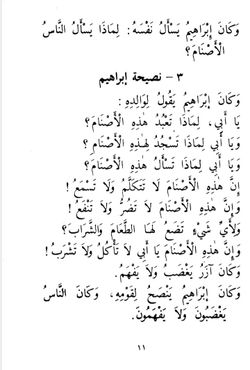 وَكَانَ إِبْرَاهِيمُ يَسْأَلُ نَفْسَهُ: لِمَاذَا يَسْأَلُ النَّاسُ
الْأَصْنَامَ؟
٣ - نصيحة إبراهيم
وَكَانَ إِبْرَاهِيمُ يَقُولُ لِوَالِدِهِ:
يَا أَبِي، لِمَاذَا تَعْبُدُ هٰذِهِ الْأَصْنَامَ؟
وَيَا أَبِي لِمَاذَا تَسْجُدُ لِهٰذِهِ الْأَصْنَامِ؟
وَيَا أَبِي لِمَاذَا تَسْأَلُ هٰذِهِ الْأَصْنَامَ؟
إِنَّ هٰذِهِ الْأَصْنَامَ لَا تَتَكَلَّمُ وَلَا تَسْمَعُ!
وَإِنَّ هٰذِهِ الْأَصْنَامَ لَا تَضُرُّ وَلَا تَنْفَعُ!
وَلِأَيِّ شَيْءٍ تَضَعُ لَهَا الطَّعَامَ وَالشَّرَابَ؟
وَإِنَّ هٰذِهِ الْأَصْنَامَ يَا أَبِي لَا تَأْكُلُ وَلَا تَشْرَبُ!
وَكَانَ آزَرُ يَغْضَبُ وَلَا يَفْهَمُ.
وَكَانَ إِبْرَاهِيمُ يَنْصَحُ لِقَوْمِهِ، وَكَانَ النَّاسُ
يَغْضَبُونَ وَلَا يَفْهَمُونَ.
١١